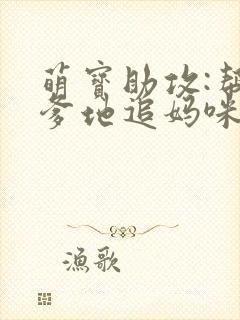 萌寶助攻:幫
爹地追媽咪
漁歌